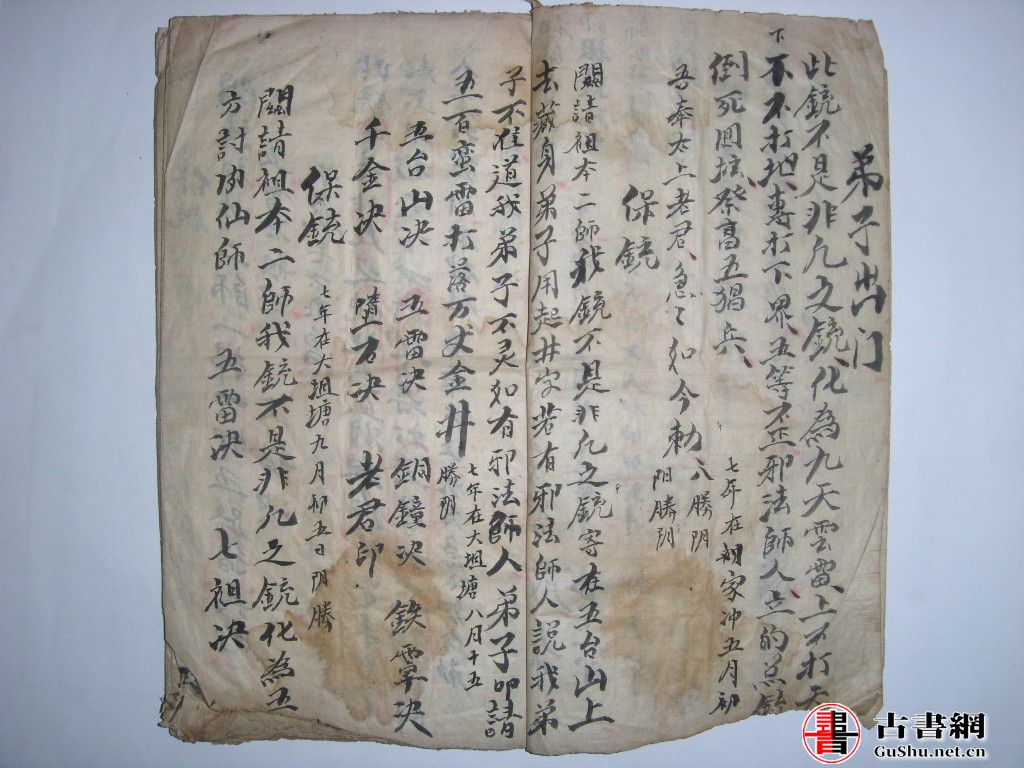 弟子出门
此鏡不是非凡之鏡化為九天雲雷上不打天
下不打地專打下界五等不正邪法師人立的
倒死回壇祭高五猖兵
七年在胡家冲五月初
吾奉太上老君急々如今勅
八勝阴
阳勝阴
保鏡
闗請祖本二師我鏡不是非凡之鏡寄在五台山上
去藏身弟子用起井字若有邪法師人說我弟
子不准道我弟子不灵如有邪法師人弟子叩請
五百蛮雷打落万丈金井
七年在大垻塘八月十五
勝阴
五台山决 五雷决 銅鐘决 鉄罩决
千金决 墮石决 老君印
保銃
七年在大垻塘九月初五日阴勝
闗請祖本二師我銃不是非凡之銃化為五
方討仙師 五雷决 七祖决
古書網
GuShu.net.cn